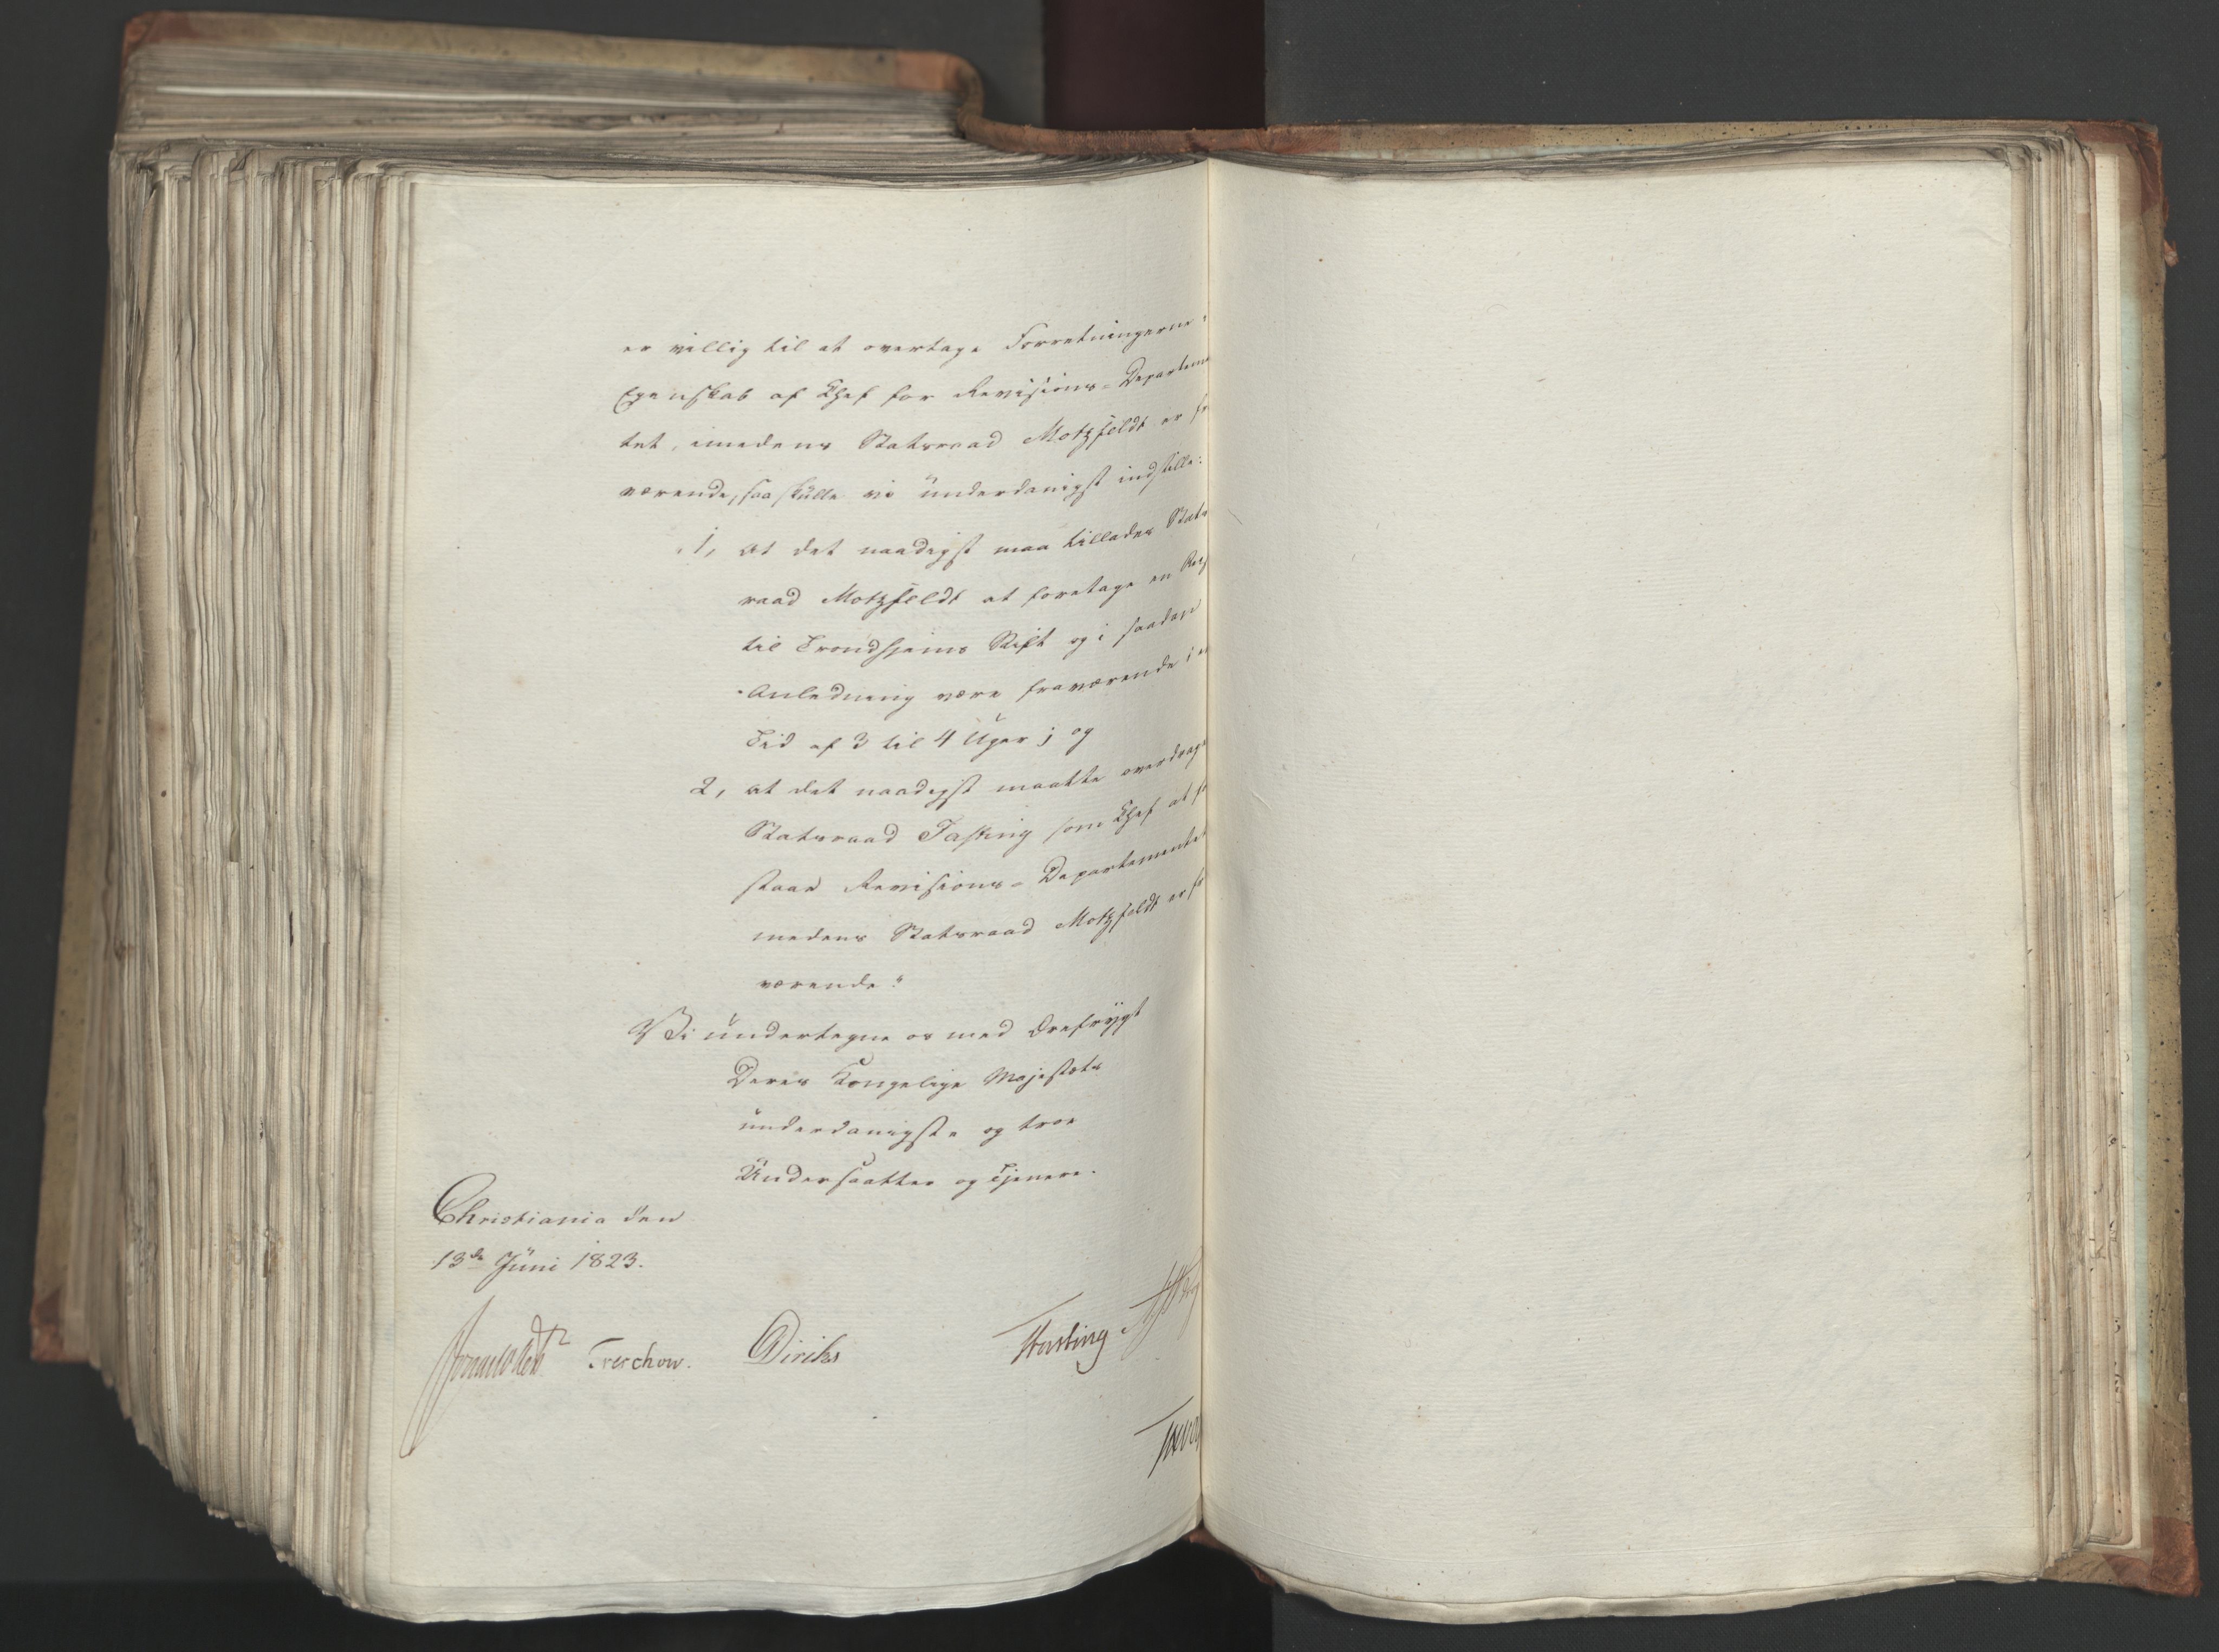 er villig til at overtage Forretningerne
Egenskab af Chef for Revisions-Departemen
tet, imedens Statsraad Motzfeldt er fr
værende, saa skulle vi underdanigst indstille:
1, at det naadigst maa tillades Stats
raad Motzfeldt at foretage en Reis
til Trondhjems Stift og i saadan
Anledning være fraværende i en
Tid af 3 til 4 Uger; og
2, at det naadigst maatte overdrages
Statsraad Fasting som Chef at fo
staae Revisions-Departementet
medens Statsraad Motzfeldt er fr
værende."
Vi undertegne os med Ærefrygt
Deres Kongelige Majestæts
underdanigste og troe
Undersaatter og Tjenere.
Christiania den
13de Juni 1823.
Treschow. Diriks Fasting